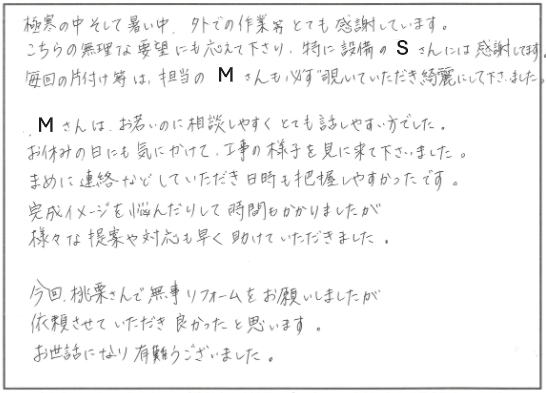 極寒の中そして暑い中、外での作業等とても感謝しています。
こちらの無理な要望にも応えて下さり、特に設備のSさんには感謝してます。
毎回の片付け等は、担当のMさんも必ず覗いていただき綺麗にして下さいました。
Mさんは、お若いのに相談しやすくとても話しやすい方でした。
お休みの日にも気にかけて、工事の様子を見に来て下さいました。
まめに連絡などしていただき日時も把握しやすかったです。
完成イメージを悩んだりして時間もかかりましたが
様々な提案や対応も早く助けていただきました。
今回、桃栗さんで無事リフォームをお願いしましたが
依頼させていただき良かったと思います。
お世話になり有難うございました。